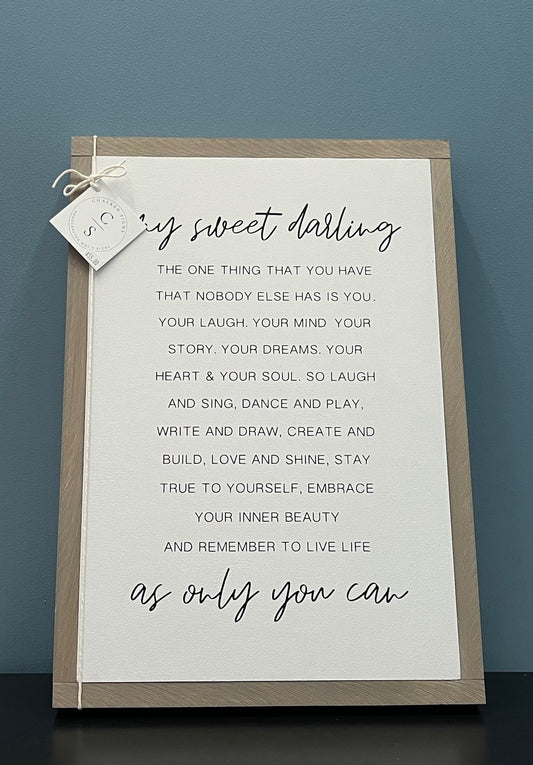 my sweet darling
THE ONE THING THAT YOU HAVE
THAT NOBODY ELSE HAS IS YOU.
YOUR LAUGH. YOUR MIND YOUR
STORY. YOUR DREAMS. YOUR
HEART & YOUR SOUL. SO LAUGH
AND SING, DANCE AND PLAY,
WRITE AND DRAW, CREATE AND
BUILD, LOVE AND SHINE, STAY
TRUE TO YOURSELF, EMBRACE
YOUR INNER BEAUTY
AND REMEMBER TO LIVE LIFE
as only you can
C
S